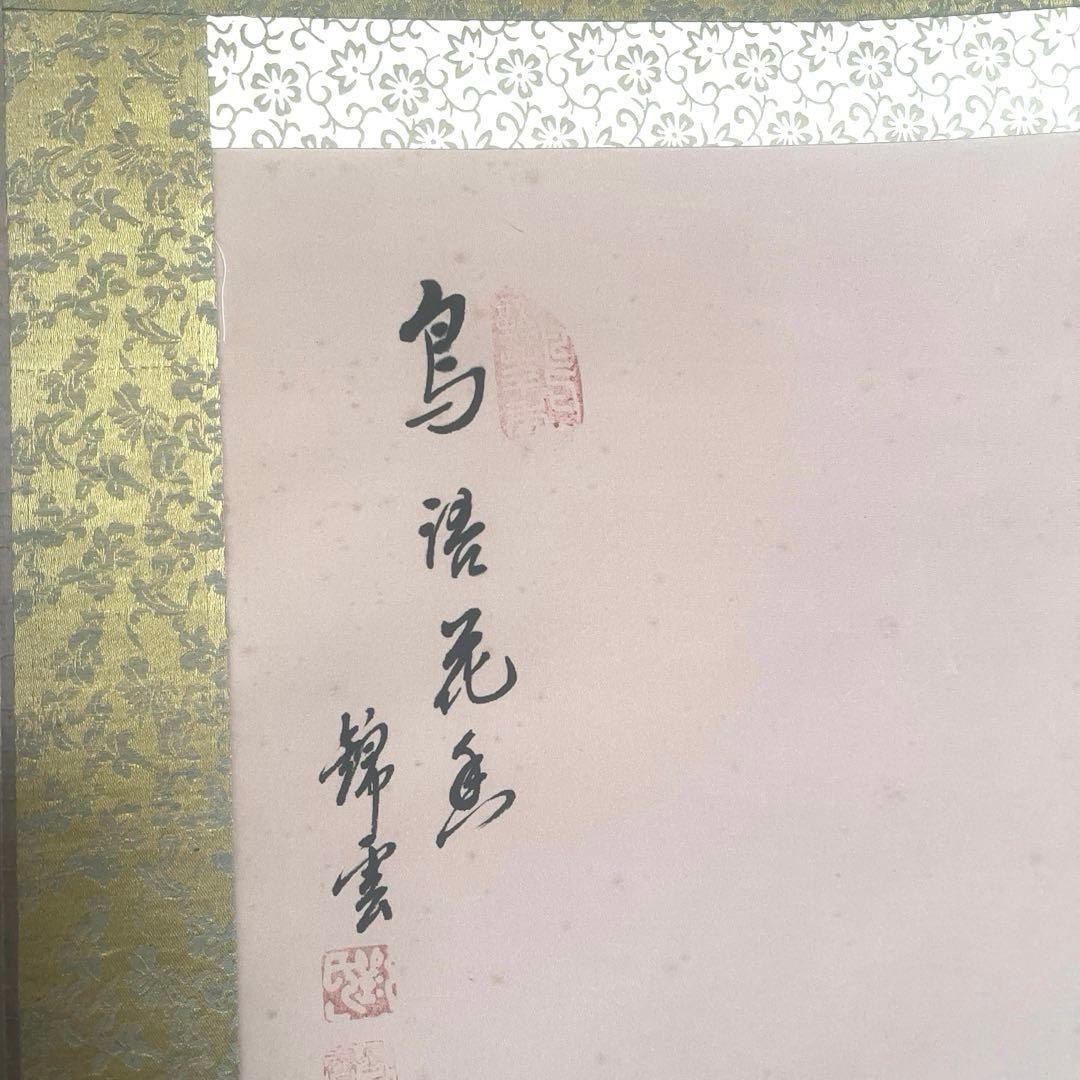 鳥語花香
錦雲